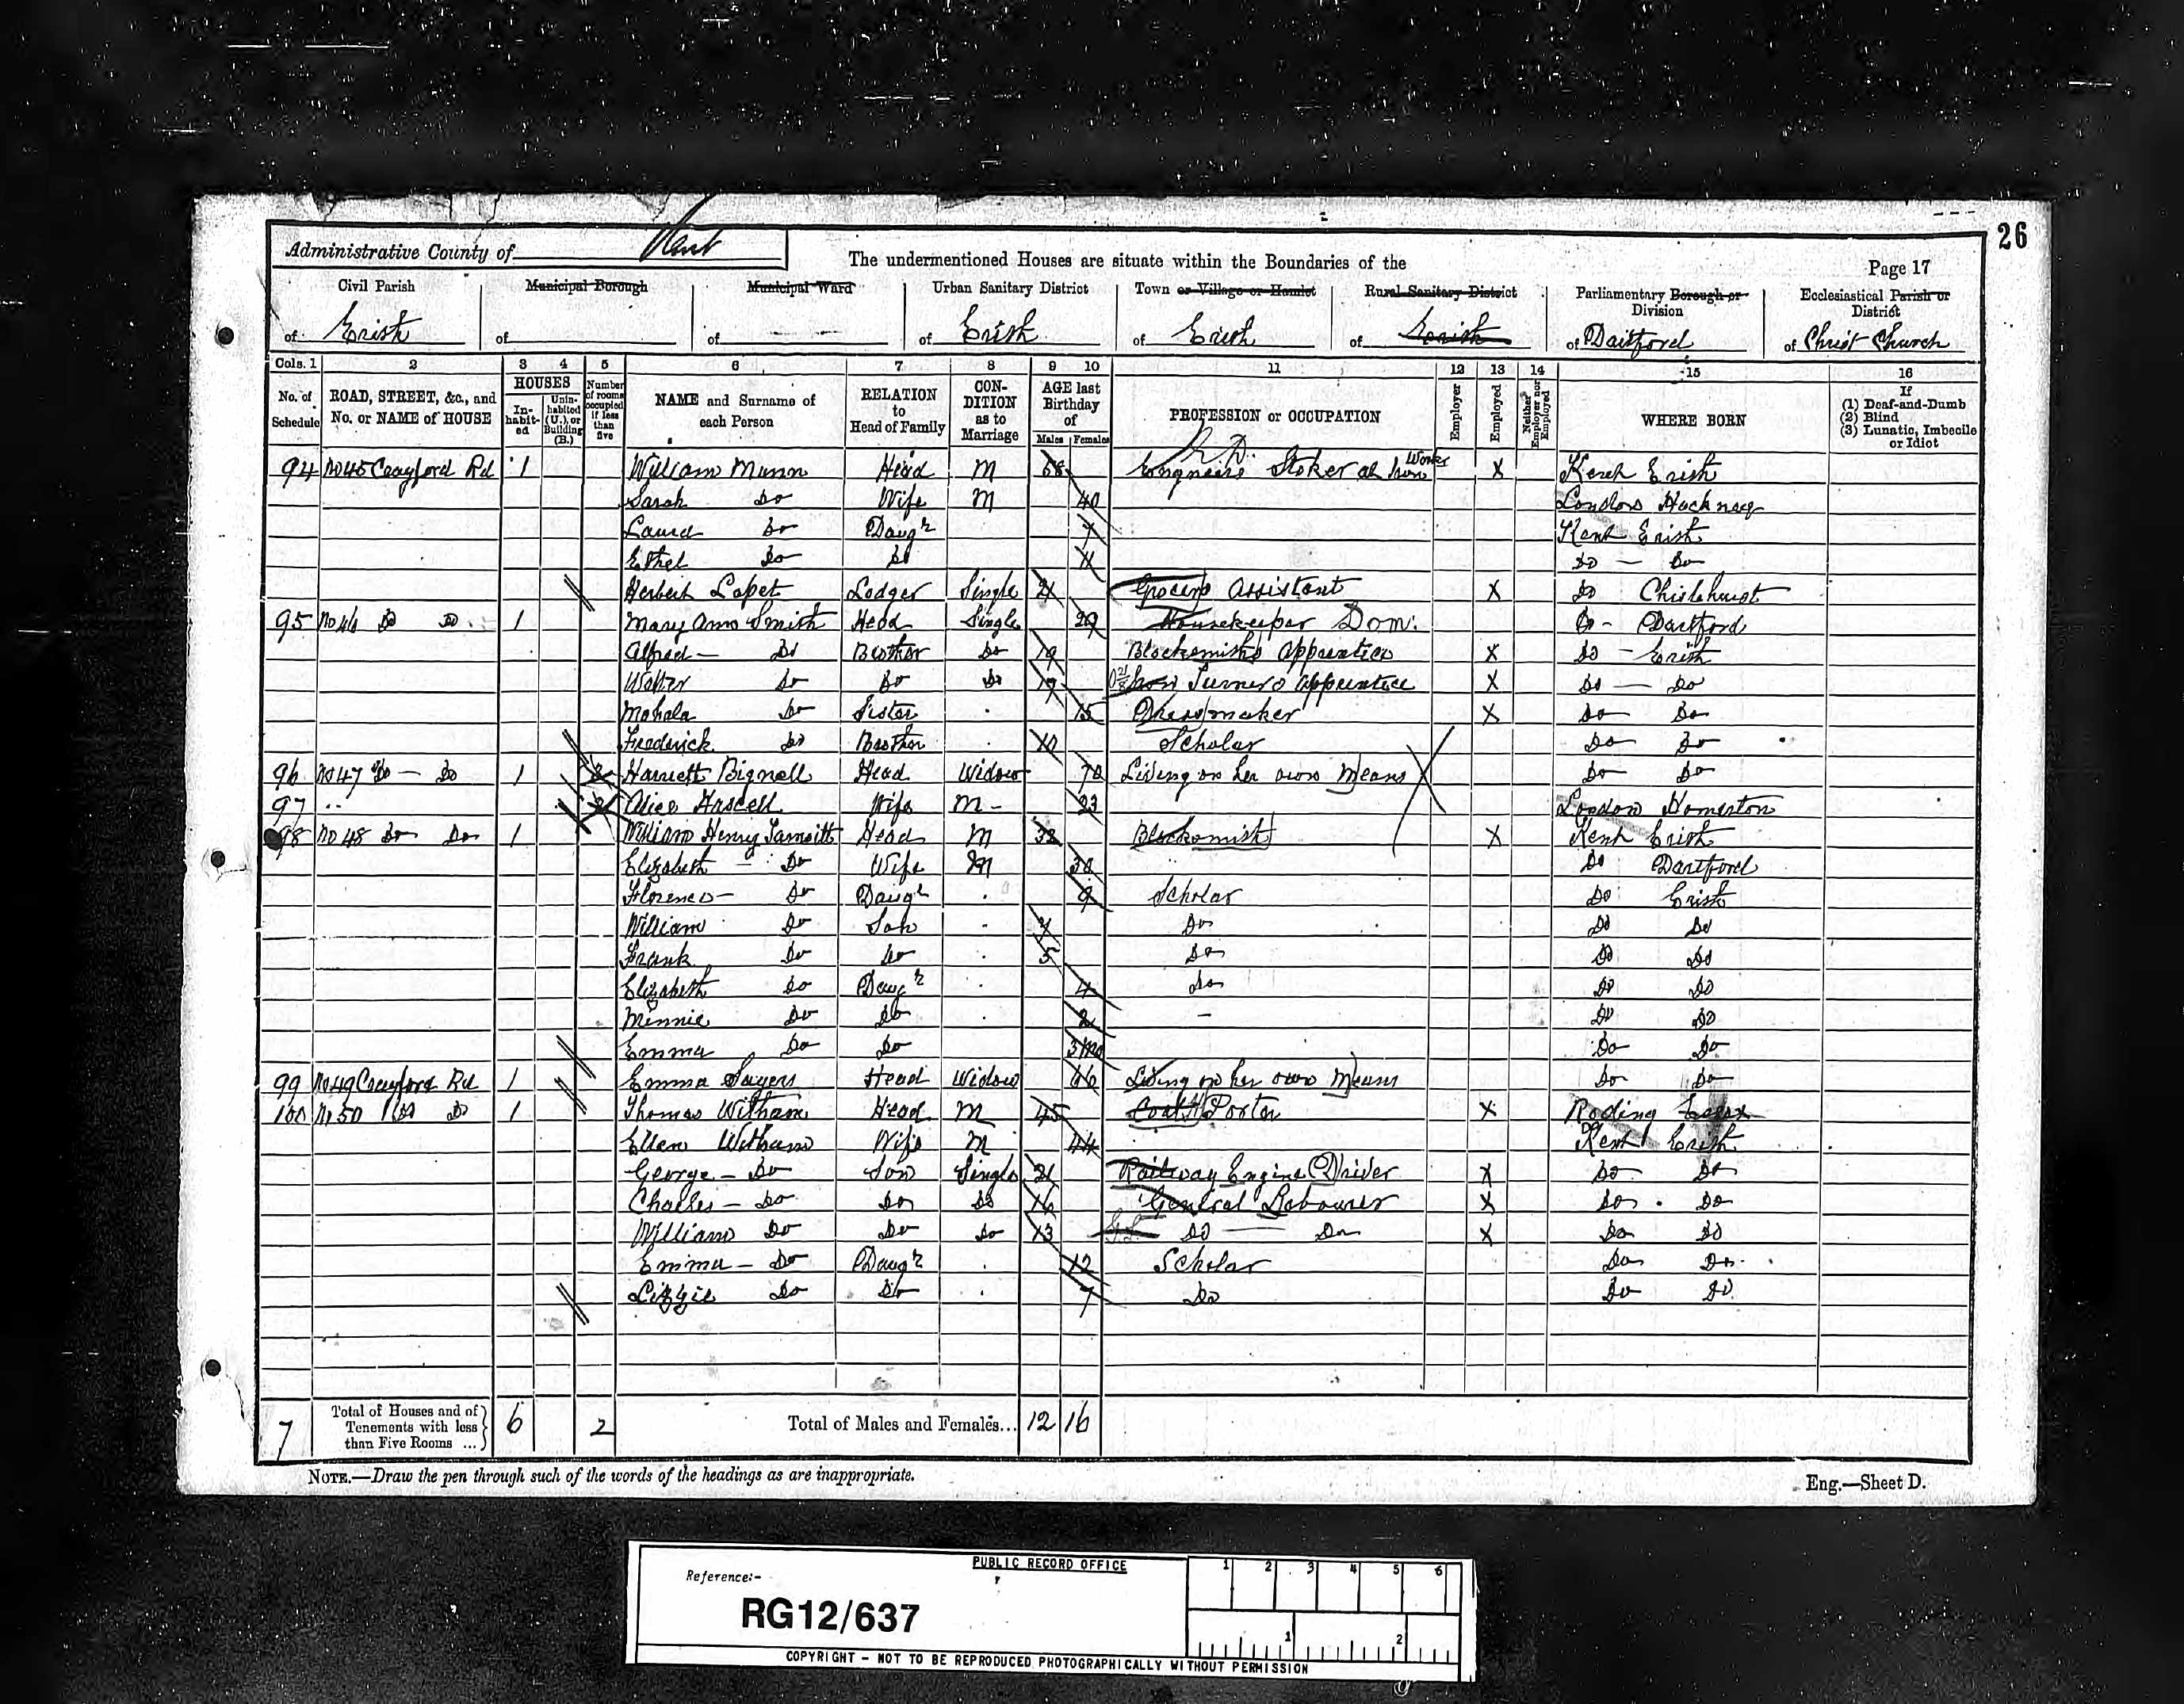 26
Administrative County of Kent
The undermentioned Houses are situate within the Boundaries of the
Page 17
Civil Parish
Municipal Borough
Municipal Ward
Urban Sanitary District
Town or Village or Hamlet
Rural Sanitary District
Parliamentary Borough or Division
Ecclesiastical Parish or District
of Erith
of
of
of Erith
of Erith
of Erith
of Dartford
of Christ Church
Cols. 1 2 3 4 5 6 7 8 9 10 11 12 13 14 15 16
No. of Schedule
ROAD, STREET, &c., and No. or NAME of HOUSE
HOUSES
In-habit-ed
Unin-habited (U.), or Building (B.)
Number of rooms occupied if less than five
NAME and Surname of each Person
RELATION to Head of Family
CON-DITION as to Marriage
AGE last Birthday of
Males Females
PROFESSION or OCCUPATION
Employer
Employed
Neither Employer nor Employed
WHERE BORN
If
(1) Deaf-and-Dumb
(2) Blind
(3) Lunatic, Imbecile or Idiot
94 No 45 Crayford Rd 1 William Munn Head M 58 Engineers Stoker at Iron Works X Kent Erith
Sarah Do Wife M 40 London Hackney
Laura Do Daugr 7 Kent Erith
Ethel Do Do Do — Do
Herbert Lapet Lodger Single 21 Grocers Assistant X Do Chislehurst
95 No 46 Do Do. 1 Mary Ann Smith Head Single 29 Housekeeper Dom. Do - Dartford
Alfred — Do Brother Do 19 Blacksmiths Apprentice X Do - Erith
Walter Do Do Do 17 Iron Turners Apprentice X Do — Do
Mahala Do Sister 15 Dressmaker X Do Do
Frederick Do Brother 10 Scholar Do Do
96 No 47 Do — Do 1 2 Harriett Bignell Head Widow 70 Living on her own Means Do Do
97 " 2 Alice Hascell Wife M - 23 London Homerton
98 No 48 Do Do 1 William Henry Head M 32 Blacksmith X Kent Erith
Elizabeth Do Wife M Do Dartford
Florence — Do Daugr 9 Scholar Do Erith
William Do Son 7 Do Do Do
Frank Do Do 5 Do Do Do
Elizabeth Do Daugr 4 Do Do Do
Minnie Do Do 2 - Do Do
Emma Do Do 3 mo Do Do
99 No 49 Crayford Rd 1 Emma Sayers Head Widow 66 Living on her own Means Do Do
100 No 50 Do 1 Thomas Witham Head M 45 Coal Porter X Roding Essex
Ellen Witham Wife M 44 Kent Erith
George — Do Son Single 21 Railway Engine Driver X Do Do
Charles — Do Do Do 16 General Labourer X Do Do
William Do Do Do 13 G.L. Do — Do X Do Do
Emma — Do Daugr 12 Scholar Do Do
Lizzie Do Do 7 Do Do Do
7 Total of Houses and of Tenements with less than Five Rooms ... 6 2 Total of Males and Females... 12 16
NOTE.—Draw the pen through such of the words of the headings as are inappropriate.
Eng.—Sheet D.
PUBLIC RECORD OFFICE
Reference:-
RG12/637
1 2 3 4 5 6
1 2
COPYRIGHT - NOT TO BE REPRODUCED PHOTOGRAPHICALLY WITHOUT PERMISSION